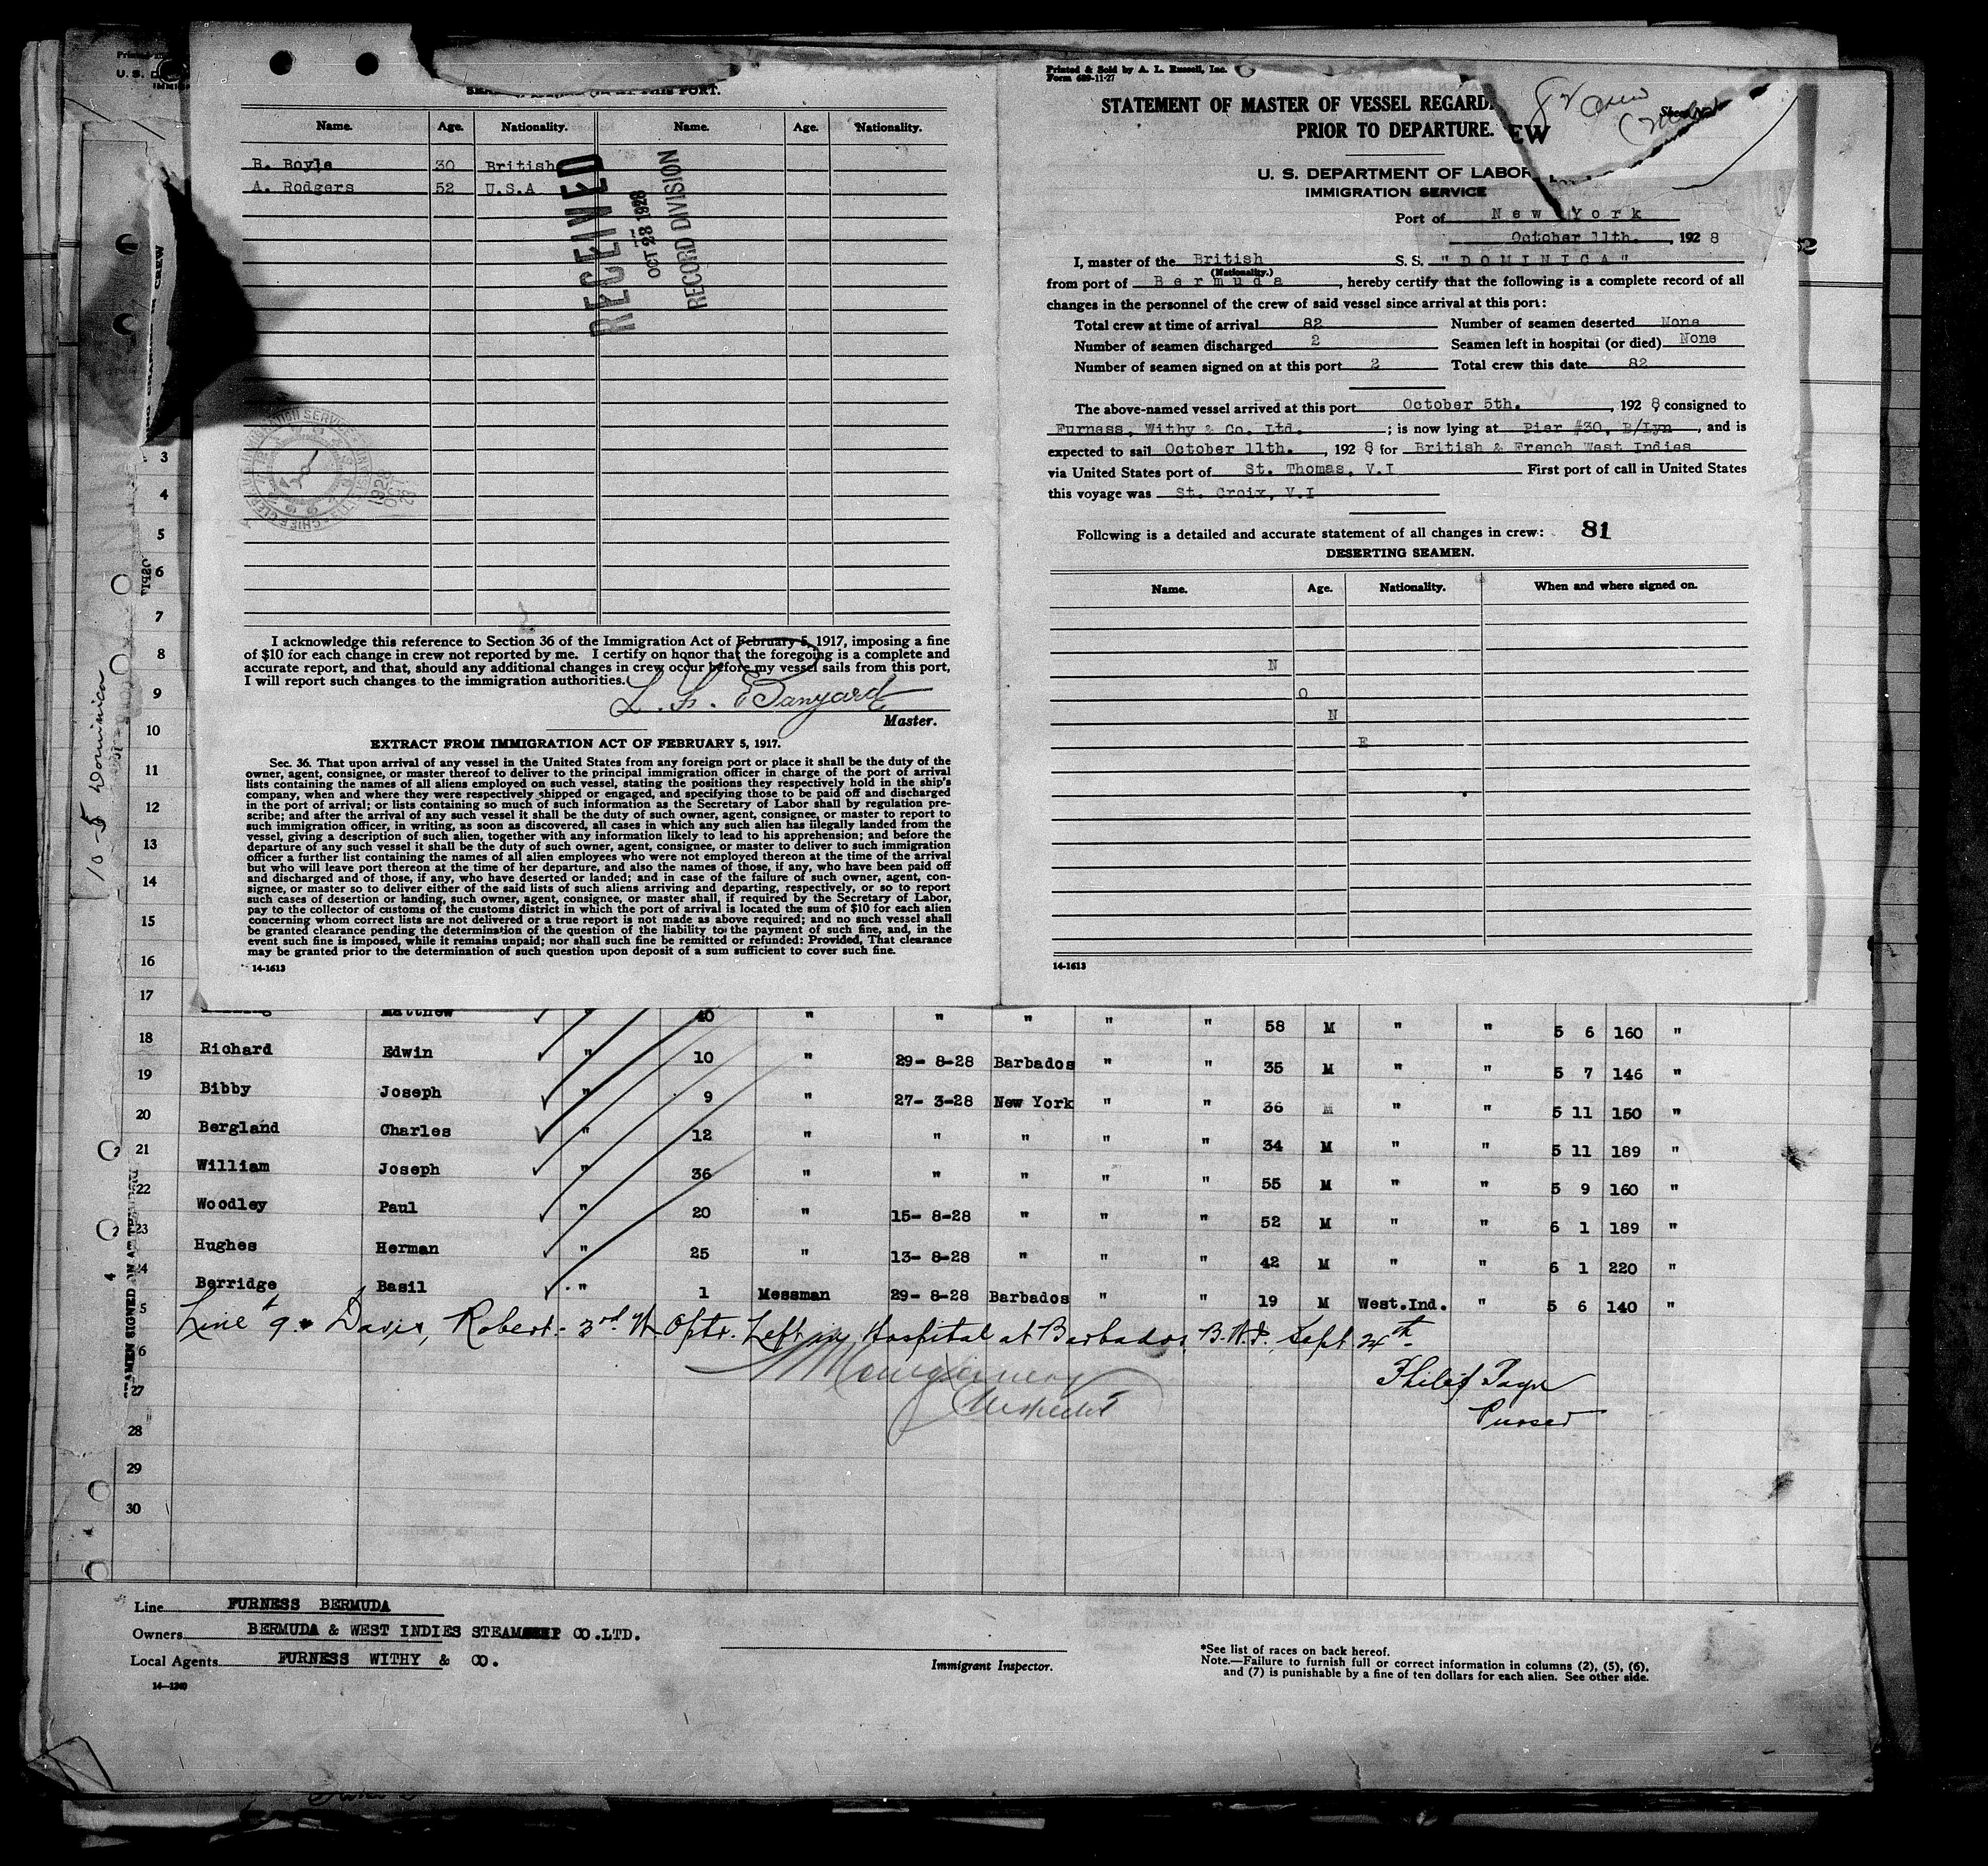 SEAMEN SIGNED ON AT THIS PORT.
Name. Age. Nationality. Name. Age. Nationality.
B. Boyle 30 British
A. Rodgers 52 U.S.A
RECEIVED
OCT 23 1928
RECORD DIVISION
I acknowledge this reference to Section 36 of the Immigration Act of February 5, 1917, imposing a fine
of $10 for each change in crew not reported by me. I certify on honor that the foregoing is a complete and
accurate report, and that, should any additional changes in crew occur before my vessel sails from this port,
I will report such changes to the immigration authorities.
Master.
EXTRACT FROM IMMIGRATION ACT OF FEBRUARY 5, 1917.
Sec. 36. That upon arrival of any vessel in the United States from any foreign port or place it shall be the duty of the
owner, agent, consignee, or master thereof to deliver to the principal immigration officer in charge of the port of arrival
lists containing the names of all aliens employed on such vessel, stating the positions they respectively hold in the ship's
company, when and where they were respectively shipped or engaged, and specifying those to be paid off and discharged
in the port of arrival; or lists containing so much of such information as the Secretary of Labor shall by regulation pre-
scribe; and after the arrival of any such vessel it shall be the duty of such owner, agent, consignee, or master to report to
such immigration officer, in writing, as soon as discovered, all cases in which any such alien has illegally landed from the
vessel, giving a description of such alien, together with any information likely to lead to his apprehension; and before the
departure of any such vessel it shall be the duty of such owner, agent, consignee, or master to deliver to such immigration
officer a further list containing the names of all alien employees who were not employed thereon at the time of the arrival
but who will leave port thereon at the time of her departure, and also the names of those, if any, who have been paid off
and discharged and of those, if any, who have deserted or landed; and in case of the failure of such owner, agent, con-
signee, or master so to deliver either of the said lists of such aliens arriving and departing, respectively, or so to report
such cases of desertion or landing, such owner, agent, consignee, or master shall, if required by the Secretary of Labor,
pay to the collector of customs of the customs district in which the port of arrival is located the sum of $10 for each alien
concerning whom correct lists are not delivered or a true report is not made as above required; and no such vessel shall
be granted clearance pending the determination of the question of the liability to the payment of such fine, and, in the
event such fine is imposed, while it remains unpaid; nor shall such fine be remitted or refunded: Provided, That clearance
may be granted prior to the determination of such question upon deposit of a sum sufficient to cover such fine.
14-1613
Printed & Sold by A. L. Russell, Inc.
Form 689-11-27
STATEMENT OF MASTER OF VESSEL REGARD
PRIOR TO DEPARTURE.
EW
U. S. DEPARTMENT OF LABOR
IMMIGRATION SERVICE
Port of New York
October 11th. , 192 8
I, master of the British S.S. "DOMINICA"
(Nationality.)
from port of Bermuda , hereby certify that the following is a complete record of all
changes in the personnel of the crew of said vessel since arrival at this port:
Total crew at time of arrival 82 Number of seamen deserted None
Number of seamen discharged 2 Seamen left in hospital (or died) None
Number of seamen signed on at this port 2 Total crew this date 82
The above-named vessel arrived at this port October 5th. , 192 8, consigned to
Furness, Withy & Co. Ltd. ; is now lying at Pier #30, B/Lyn , and is
expected to sail October 11th. , 192 8 for British & French West Indies
via United States port of St. Thomas, V.I First port of call in United States
this voyage was St. Croix, V.I
Following is a detailed and accurate statement of all changes in crew: 81
DESERTING SEAMEN.
Name. Age. Nationality. When and where signed on.
N
O
N
E
14-1613
10-5 Dominica
3
4
5
6
7
8
9
10
11
12
13
14
15
16
17
Matthew 40 " " " " " 58 M " " 5 6 160 "
18 Richard Edwin " 10 " 29- 8-28 Barbados " " 35 M " " 5 7 146 "
19 Bibby Joseph " 9 " 27- 3-28 New York " " 36 M " " 5 11 150 "
20 Bergland Charles " 12 " " " " " 34 M " " 5 11 189 "
21 William Joseph " 36 " " " " " 55 M " " 5 9 160 "
22 Woodley Paul " 20 " 15- 8-28 " " " 52 M " " 6 1 189 "
23 Hughes Herman " 25 " 13- 8-28 " " " 42 M " " 6 1 220 "
24 Berridge Basil " 1 Messman 29- 8-28 Barbados " " 19 M West.Ind. " 5 6 140 "
Line # 9. Davis, Robert - 3rd W. Optr. Left in Hospital at Barbados, B.W.I., Sept 24th
Purser
27
28
29
30
Line FURNESS BERMUDA
Owners BERMUDA & WEST INDIES STEAMSHIP CO.LTD.
Local Agents FURNESS WITHY & CO.
14—1240
Immigrant Inspector.
*See list of races on back hereof.
Note.—Failure to furnish full or correct information in columns (2), (5), (6),
and (7) is punishable by a fine of ten dollars for each alien. See other side.